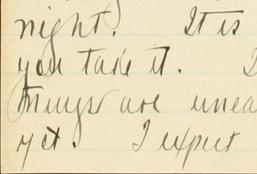 night. It is
you take it.
things are unea
yet. I expect